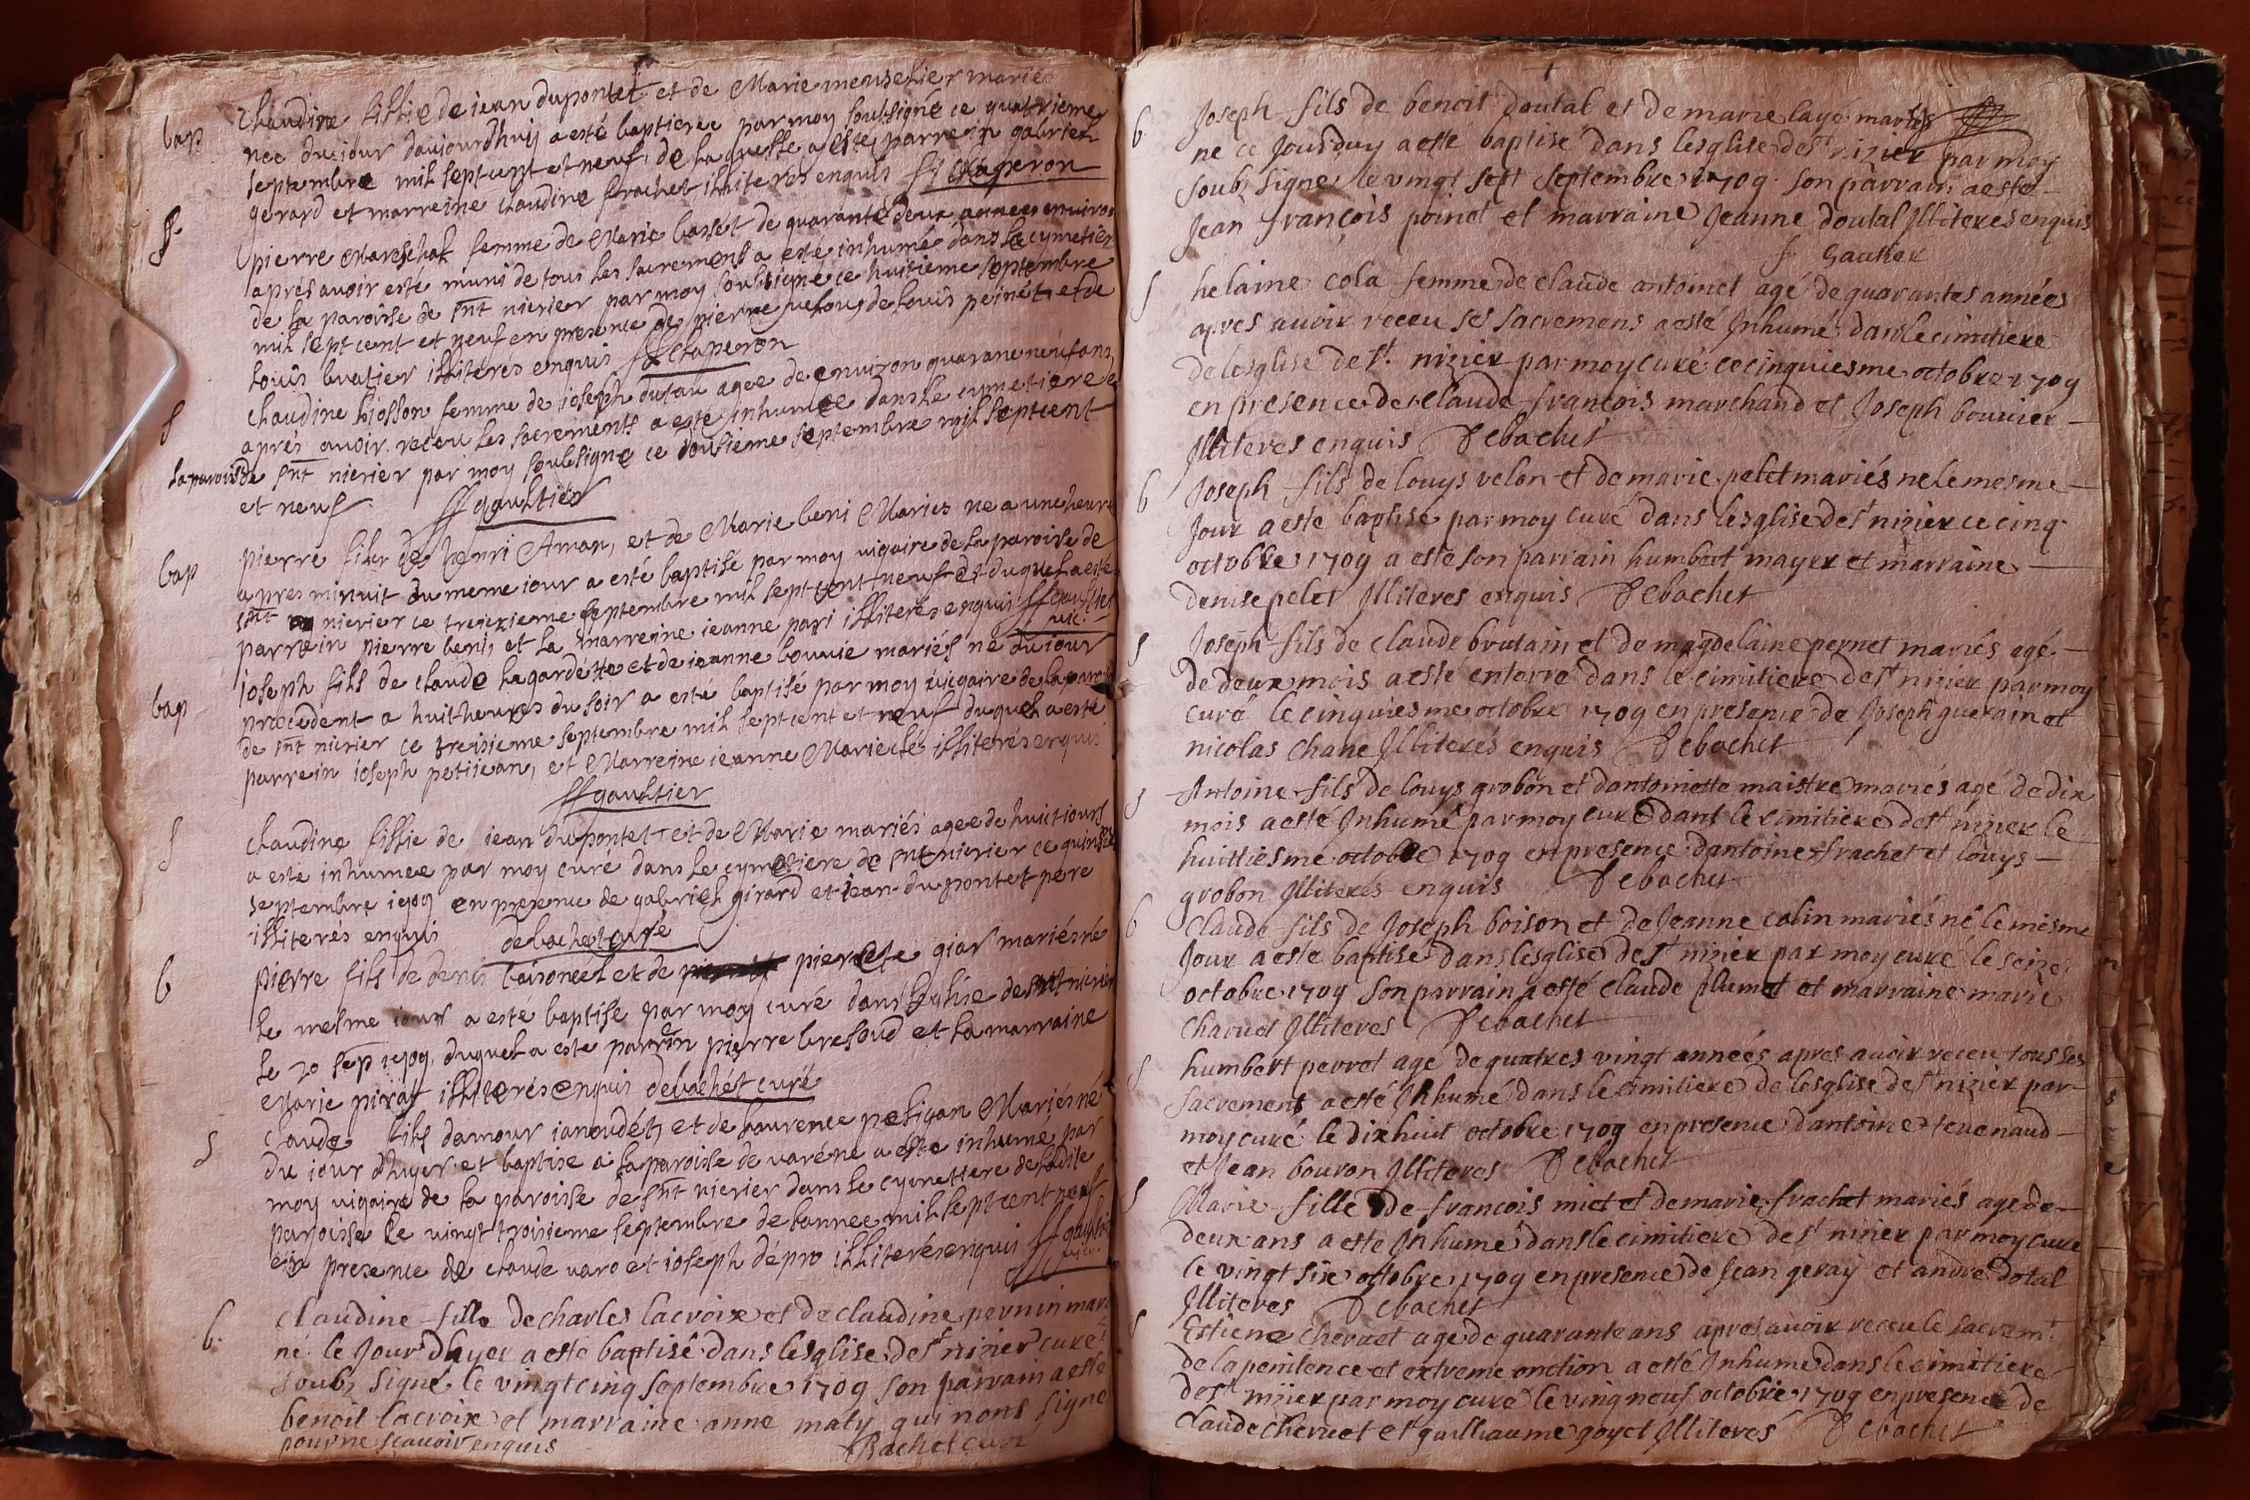 bap
Claudine fillie de iean dupontet et de Marie meusehier mariés
nee du iour daujourdhuy a esté baptisee par moy soubsigné ce quatrieme
septembre mil sept cent et neuf, de laquelle a esté parrein gabriel
gerard et marreine claudine frachet illiterés enquis ff chaperon
S
pierre Mareschal femme de Marie basset de quarante deux annees environ
aprés avoir esté muni de tous les sacrements a esté inhumé dans le cymetiere
de la paroisse de snt nierier par moy soubsigné ce huitieme septembre
mil sept cent et neuf en presence de pierre velou, de louis peinét et de
louis buatier illiterés enquis ff chaperon
S
Claudine hiosson femme de ioseph dutau agee de environ quarante neuf ans
aprés avoir receu les sacrements a esté inhumee dans le cymetiere de
la paroisse snt nierier par moy soubsigné ce dousieme septembre mil sept cent
et neuf ff gaultier
bap
pierre fils de henri Aman, et de Marie beni Mariés ne a une heure
apres minuit du meme iour a esté baptisé par moy vigaire de la paroisse de
snt nierier ce treisieme septembre mil sept cent neuf et duquel a esté
parrein pierre beni, et la marreine ieanne pari illiterés enquis ff gaultier
vic.
bap
ioseph fils de claude lagardette et de ieanne bouvie mariés né du iour
precedent a huit heures du soir a esté baptisé par moy vicgaire de la paroisse
de snt nierier ce treisieme septembre mil sept cent et neuf duquel a esté
parrein ioseph petiiean, et Marreine ieanne Mariechés illiterés enquis
ff gaultier
S
claudine fillie de iean dupontet et de Marie mariés agee de huit iours
a este inhumee par moy curé dans le cymetiere de snt nierier ce quinse
septembre 1709 en presence de gabriel girard et iean dupontet pere
illiterés enquis debachet curé
b
pierre fils de denis boisonet et de pierrete giar mariés né
le mesme iour a esté baptisé par moy curé dans leglise de snt nierier
le 20 sep 1709 duquel a este parrein pierre bressoud et la marraine
Marie pirat illiterés enquis debachét curé
S
Claude fils damour ianoudét, et de laurence petiean Mariés né
du iour dhuyer et baptisé a la paroisse de varéne a esté inhumé par
moy vigaire de la paroisse de snt nierier dans le cymettere de ladite
paroisse le vingt troisieme septembre de lannee mil sept cent neuf
en presence de claude varo et ioseph dépro illiterés enquis ff gaultier
vic.
b.
Claudine fille de charles lacroix et de claudine pernin mari
né le Jour dhyer a esté baptisé dans lesglise de st nizier curé
soubs signé le vingt cinq septembre 1709 son parrain a esté
benoit lacroix et marraine anne maty qui nont signé
pour ne scavoir enquis Bachet curé
b
Joseph fils de benoit doutal et de marie layé mariés
ne ce Jourduy a esté baptisé dans lesglise de st nizier par moy
soub signé le vingt sept septembre 1709 son parrain a esté
Jean françois poinet et marraine Jeanne doutal Illiteres enquis
f Gautier
S
helaine cola femme de claude antoinet agé de quarantes années
apres auoir receu ses sacremens a esté Inhumé dans le cimitiere
de lesglise de st. nizier par moy curé ce cinquiesme octobre 1709
en presence de claude françois marchand et Joseph bouvier
Illiteres enquis Debachet
b
Joseph fils de louys velon et de marie pelet mariés né le mesme
Jour a esté baptisé par moy curé dans lesglise de st nizier ce cinq
octobre 1709 a esté son parrain humbert mayer et marraine
denise pelet Illiteres enquis Debachet
S
Joseph fils de claude brutain et de magdelaine pernet mariés agé
de deux mois a esté enterré dans le cimitiere de st nizier par moy
curé le cinquiesme octobre 1709 en presence de Joseph guerain et
nicolas chane Illiterés enquis Debachet
S
Antoine fils de louys grobon et dantoinette maistre mariés agé de dix
mois a esté Inhumé par moy curé dans le cimitiere de st nizier le
huittiesme octobre 1709 en presence dantoine frachet et louys
grobon Illiterés enquis Debachet
b
Claude fils de Joseph boison et de Jeanne colin mariés né le mesme
Jour a esté baptisé dans lesglise de st nizier par moy curé le seize
octobre 1709 son parrain a esté claude plumet et marraine marie
charuet Illiteres Debachet
S
humbert perrot age de quatres vingt années apres auoir receu tous ses
sacremens a esté Inhumé dans le cimitiere de lesglise de st nizier par
moy curé le dixhuit octobre 1709 en presence dantoine teuenaud
et Jean bouron Illiteres Debachet
S
Marie fille de françois miet et de marie frachet mariés age de
deux ans a esté Inhumé dans le cimitiere de st nizier par moy curé
le vingt six octobre 1709 en presence de Jean geray et andré dotal
Illiteres Debachet
S
Estiene cheruet age de quarante ans apres auoir receu le sacremt
de la penitence et extreme onction a esté Inhumé dans le cimitiere
de st nizier par moy curé le vingneuf octobre 1709 en presence de
Claude cheruet et guilliaume goyet Illiterés Debachet